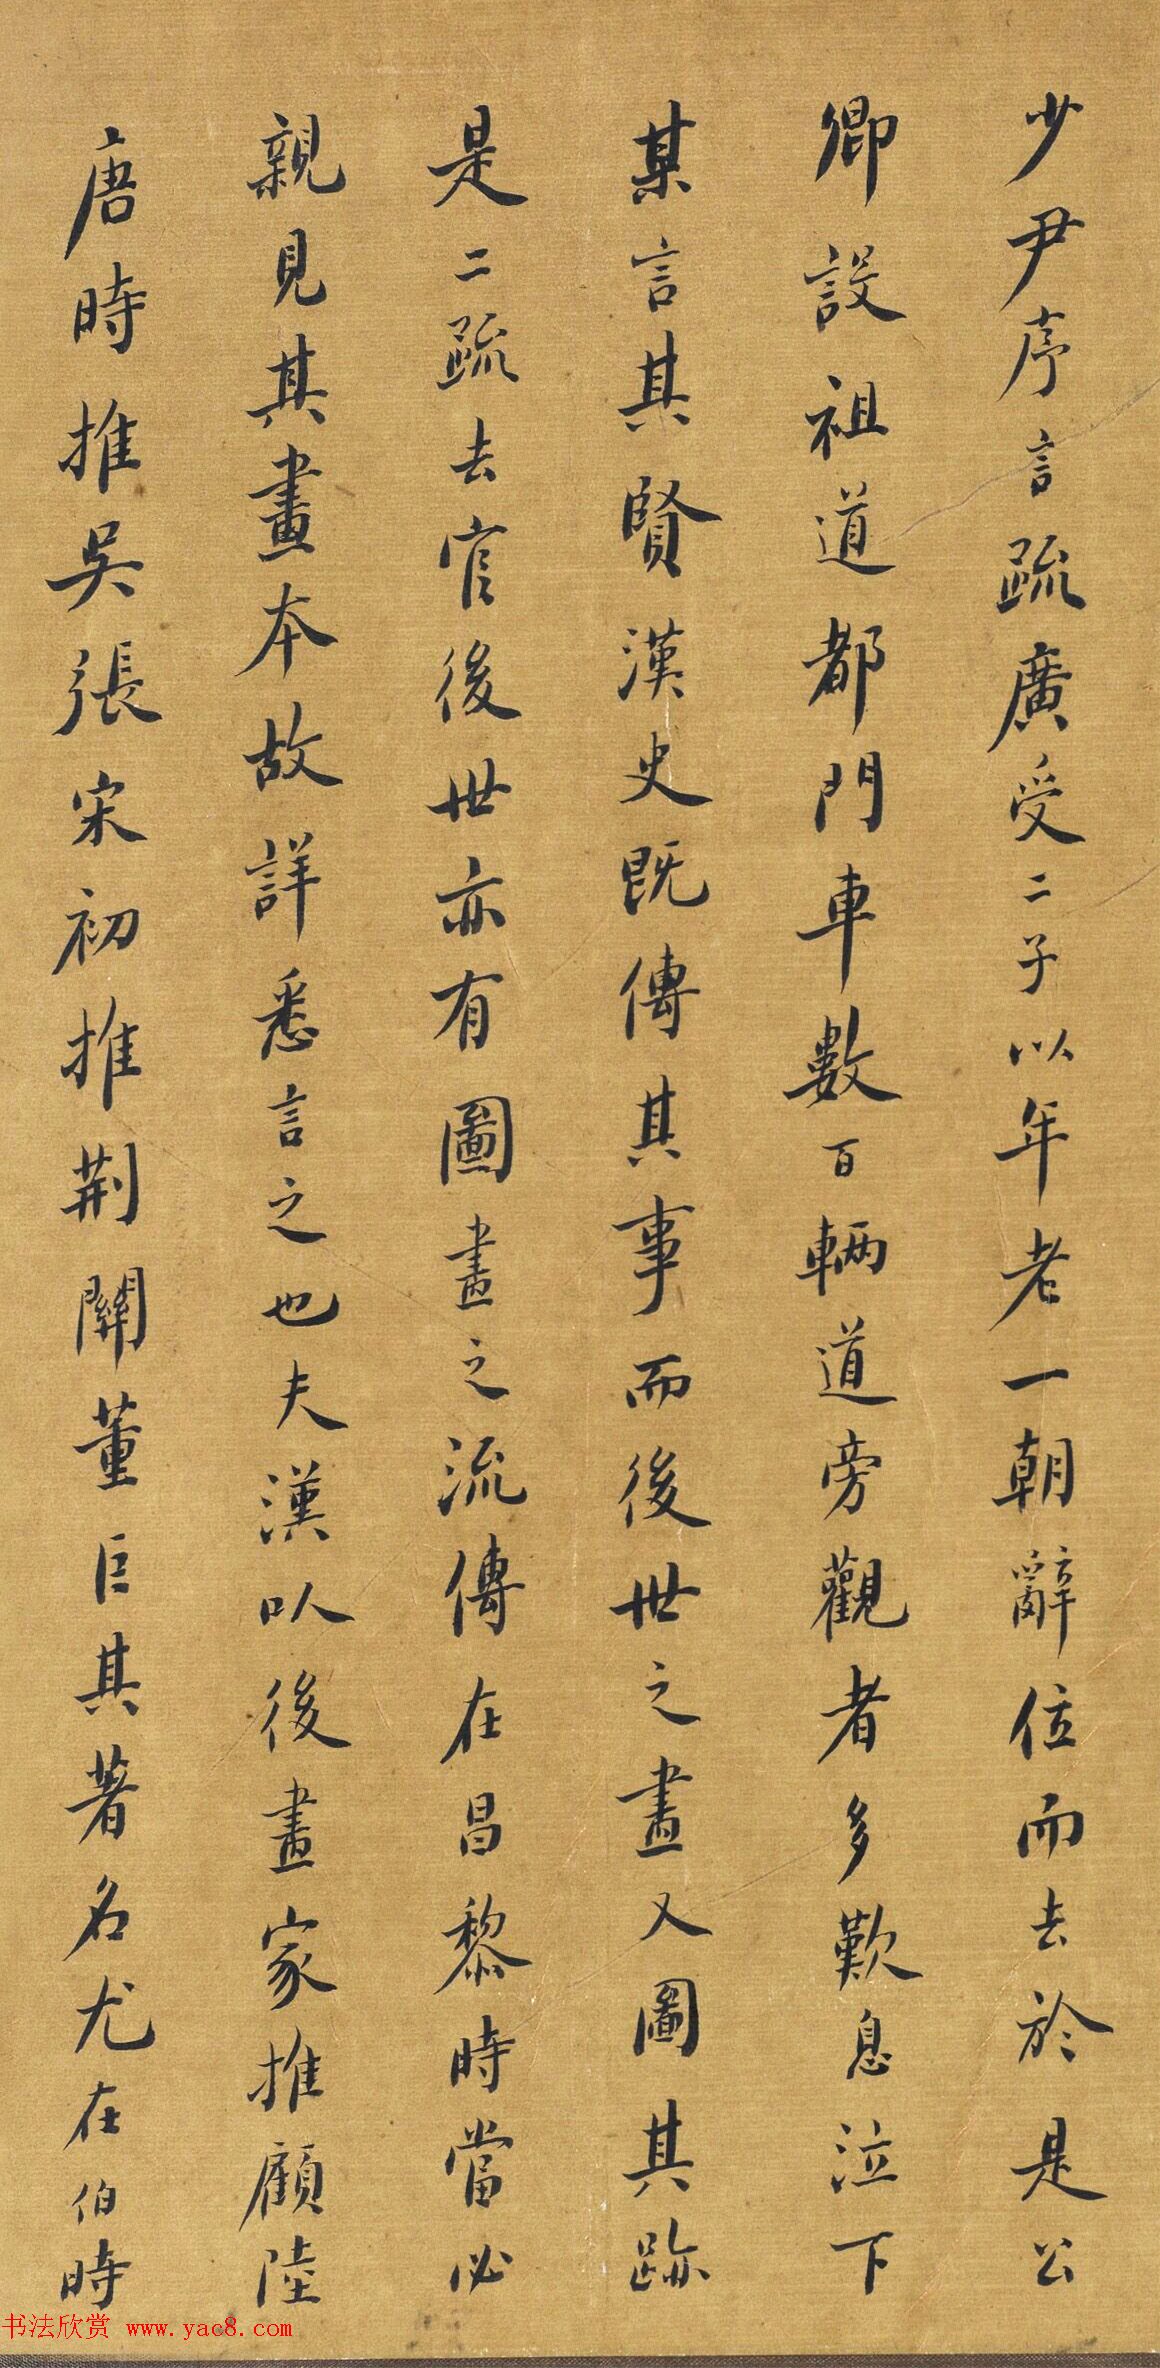 少尹序言疏廣受二子以年老一朝辭位而去於是公
卿設祖道都門車數百輛道旁觀者多歎息泣下
某言其賢漢史既傳其事而後世之畫又圖其跡
是二疏去官後世亦有圖畫之流傳在昌黎時當必
親見其畫本故詳悉言之也夫漢以後畫家推顧陸
唐時推吳張宋初推荆關董巨其著名尤在伯時
书法欣赏 www.yac8.com